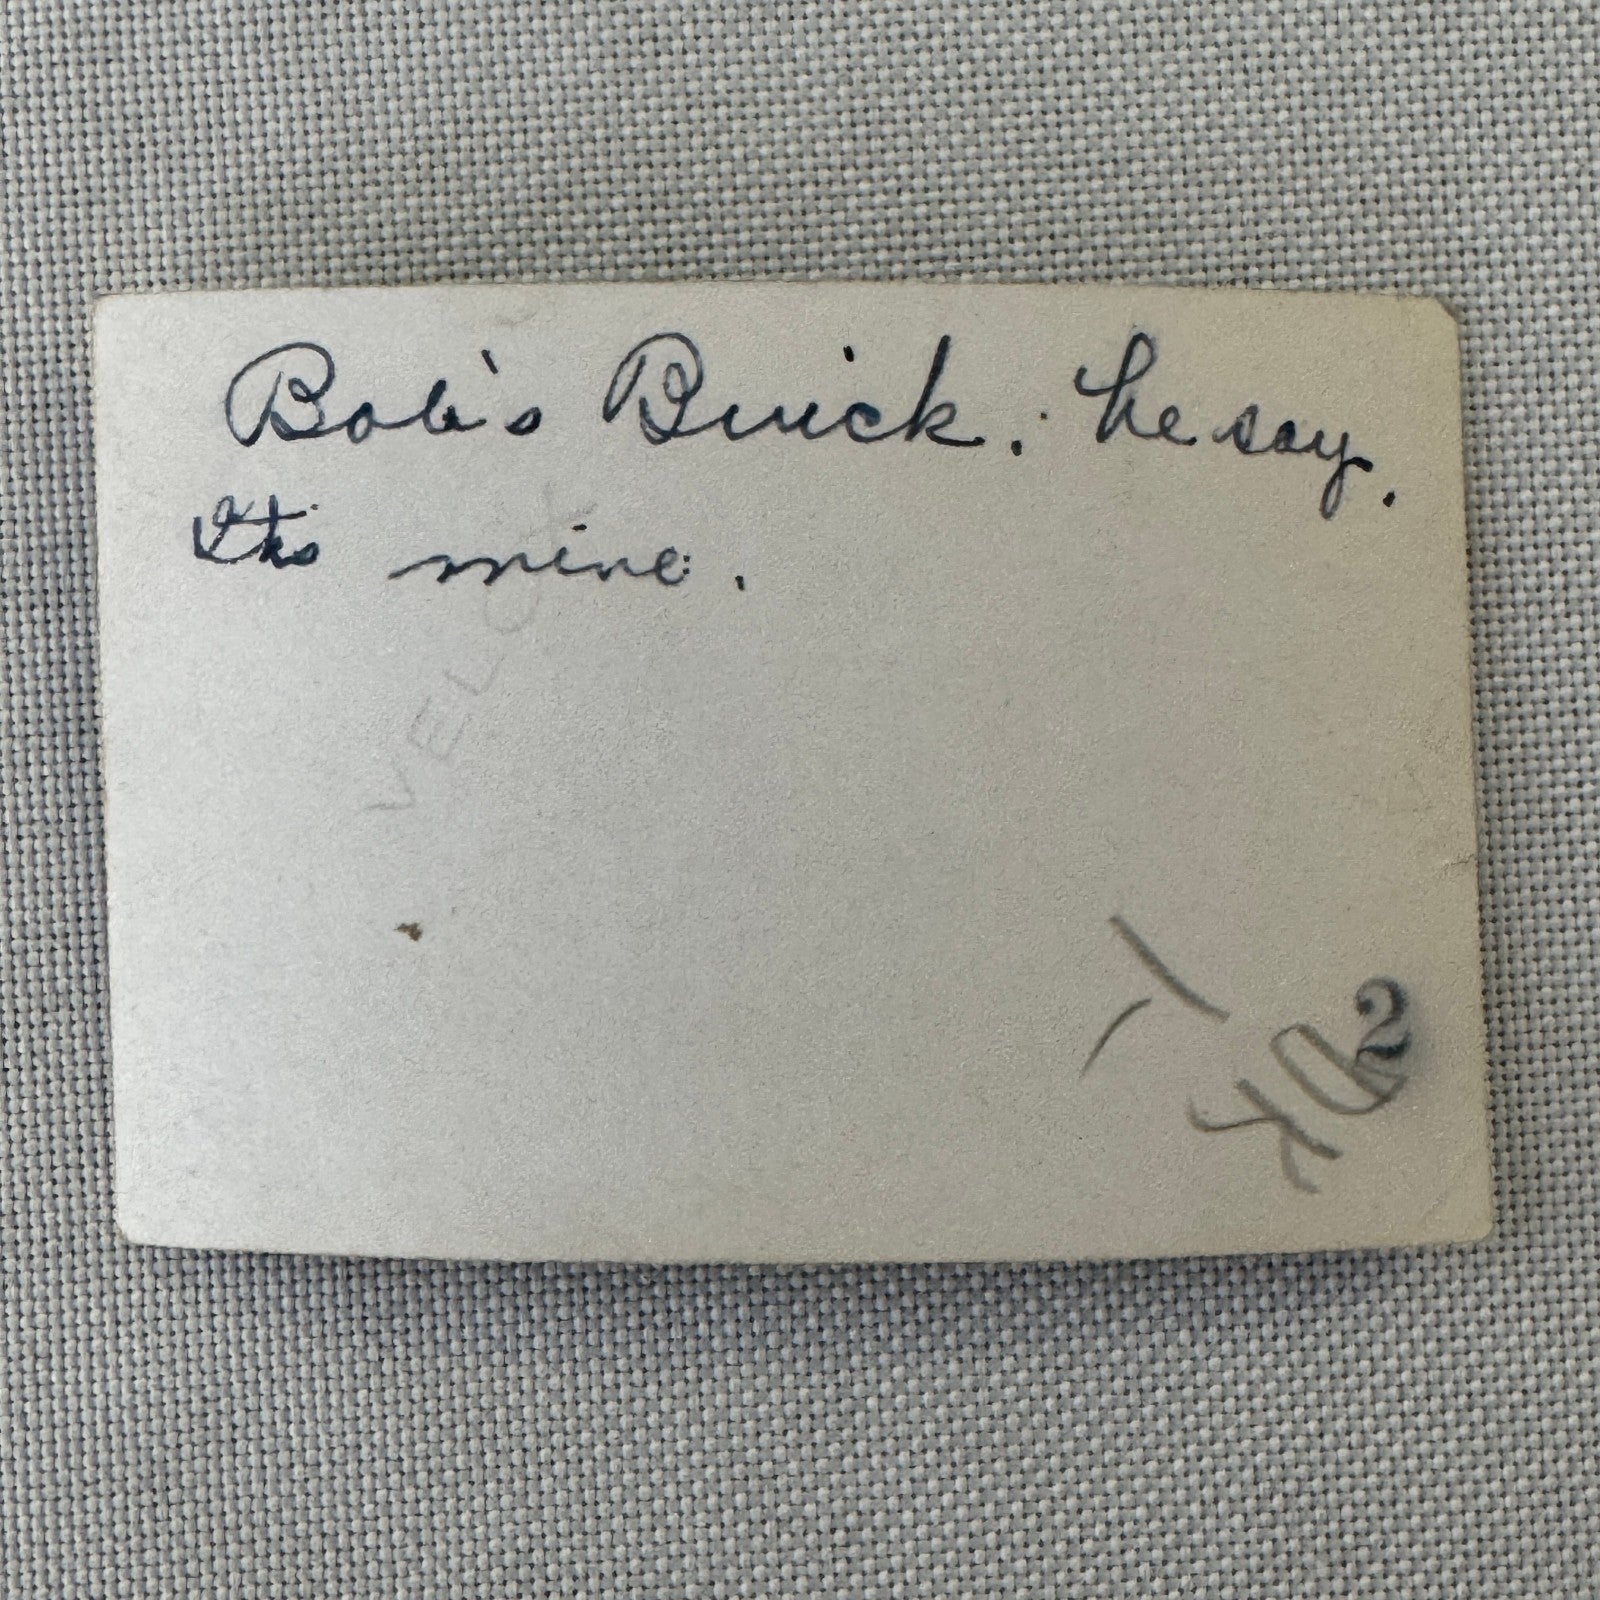 Bob's Buick. he say.
Its mine.
VELOX
2